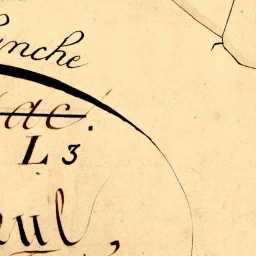 anche
ac.
L 3
aul,